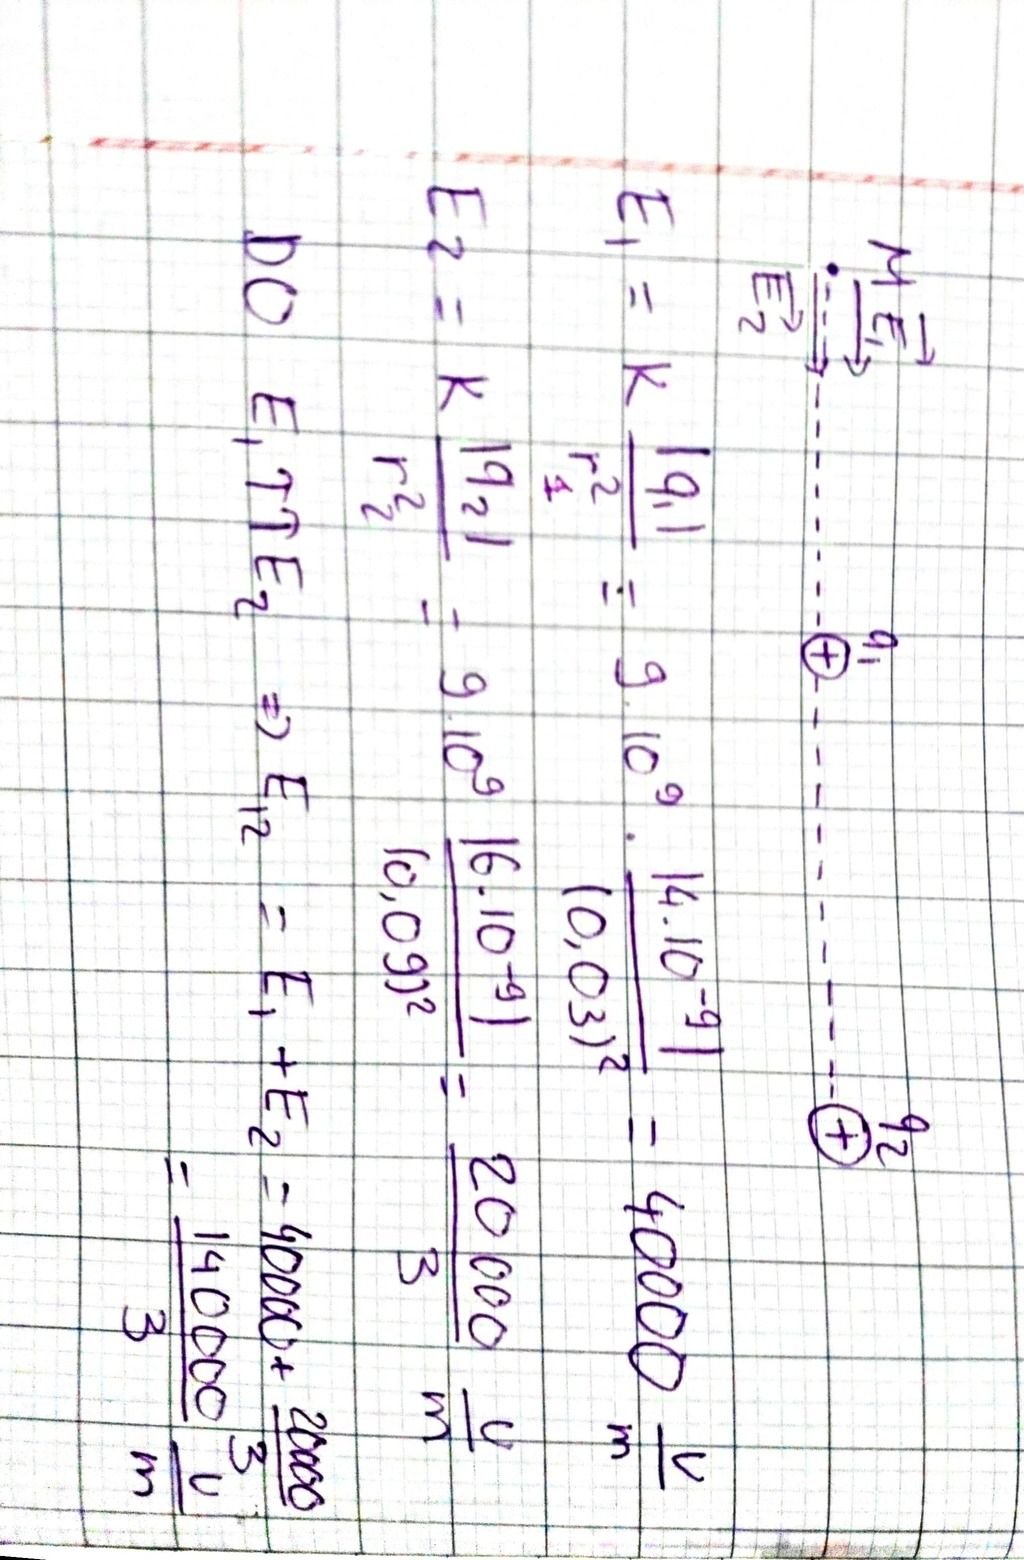 M E₁ q₁ q₂
E₂
E₁ = k |q₁| / r₁² = 9.10⁹ . |4.10⁻⁹| / (0,03)² = 40000 V/m
E₂ = k |q₂| / r₂² = 9.10⁹ |6.10⁻⁹| / (0,09)² = 20000/3 V/m
DO E₁ ↑↑ E₂ ⇒ E₁₂ = E₁ + E₂ = 40000 + 20000/3
= 140000/3 V/m